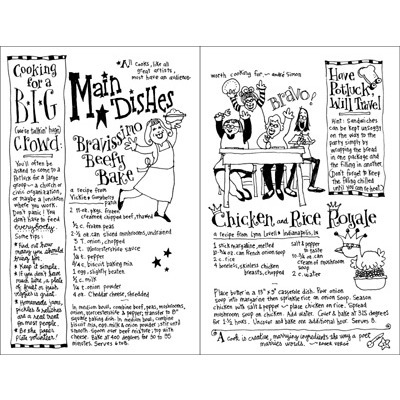 Cooking
for a
B·I·G
(we're talkin' huge)
Crowd:
You'll often be
asked to come to a
Potluck for a large
group — a church or
civic organization,
or maybe a function
where you work.
Don't panic! You
don't have to feed
everybody.
Some tips:
Find out how
many you should
bring for.
Keep it simple.
If you don't have
much time, a plate
of fruit or fresh
veggies is great.
Homemade jams,
pickles & relishes
are a real treat
for most people.
Be the paper
plate volunteer!
All cooks, like all
great artists,
must have an audience
Main
Dishes
Bravissimo
Beefy
Bake
a recipe from
Vickie
2 11-oz. pkgs. frozen
creamed chopped beef, thawed
1/2 c. frozen peas
2-1/2 oz. can sliced mushrooms, undrained
3 T. onion, chopped
1 t. Worcestershire sauce
1/4 t. pepper
biscuit baking mix
1 egg, slightly beaten
1/2 c. milk
1/4 t. onion powder
4 oz. Cheddar cheese, shredded
In medium bowl, combine beef, peas, mushrooms,
onion, worcestershire & pepper; transfer to 8"
square baking dish. In medium bowl, combine
biscuit mix, egg, milk & onion powder; stir until
smooth. Spoon over beef mixture; top with
cheese. Bake at 400 degrees for 30 to 35
minutes. Serves 6 to 8.
worth cooking for. — André Simon
Bravo!
Have
Potluck,
Will Travel
Hint: Sandwiches
can be kept unsoggy
on the way to
the party simply
by wrapping
the bread in
one package and
the filling in another.
(Don't forget to keep
the filling chilled
until you can be there!)
Chicken and Rice Royale
a recipe from Lynn Lovell Indianapolis, IN
1 stick margarine, melted
10-3/4 oz. can French onion soup
2 c. rice
4 boneless, skinless chicken
breasts, chopped
salt & pepper
to taste
10-3/4 oz. can
cream of mushroom
soup
2 c. water
Place butter in a 13" x 9" casserole dish. Pour onion
soup into margarine then sprinkle rice on onion soup. Season
chicken with salt & pepper and place chicken on rice. Spread
mushroom soup on chicken. Add water. Cover & bake at 325 degrees
for 2-1/2 hours. Uncover and bake one additional hour. Serves 8.
A cook is creative, marrying ingredients the way a poet
marries words. — Roger Vergé